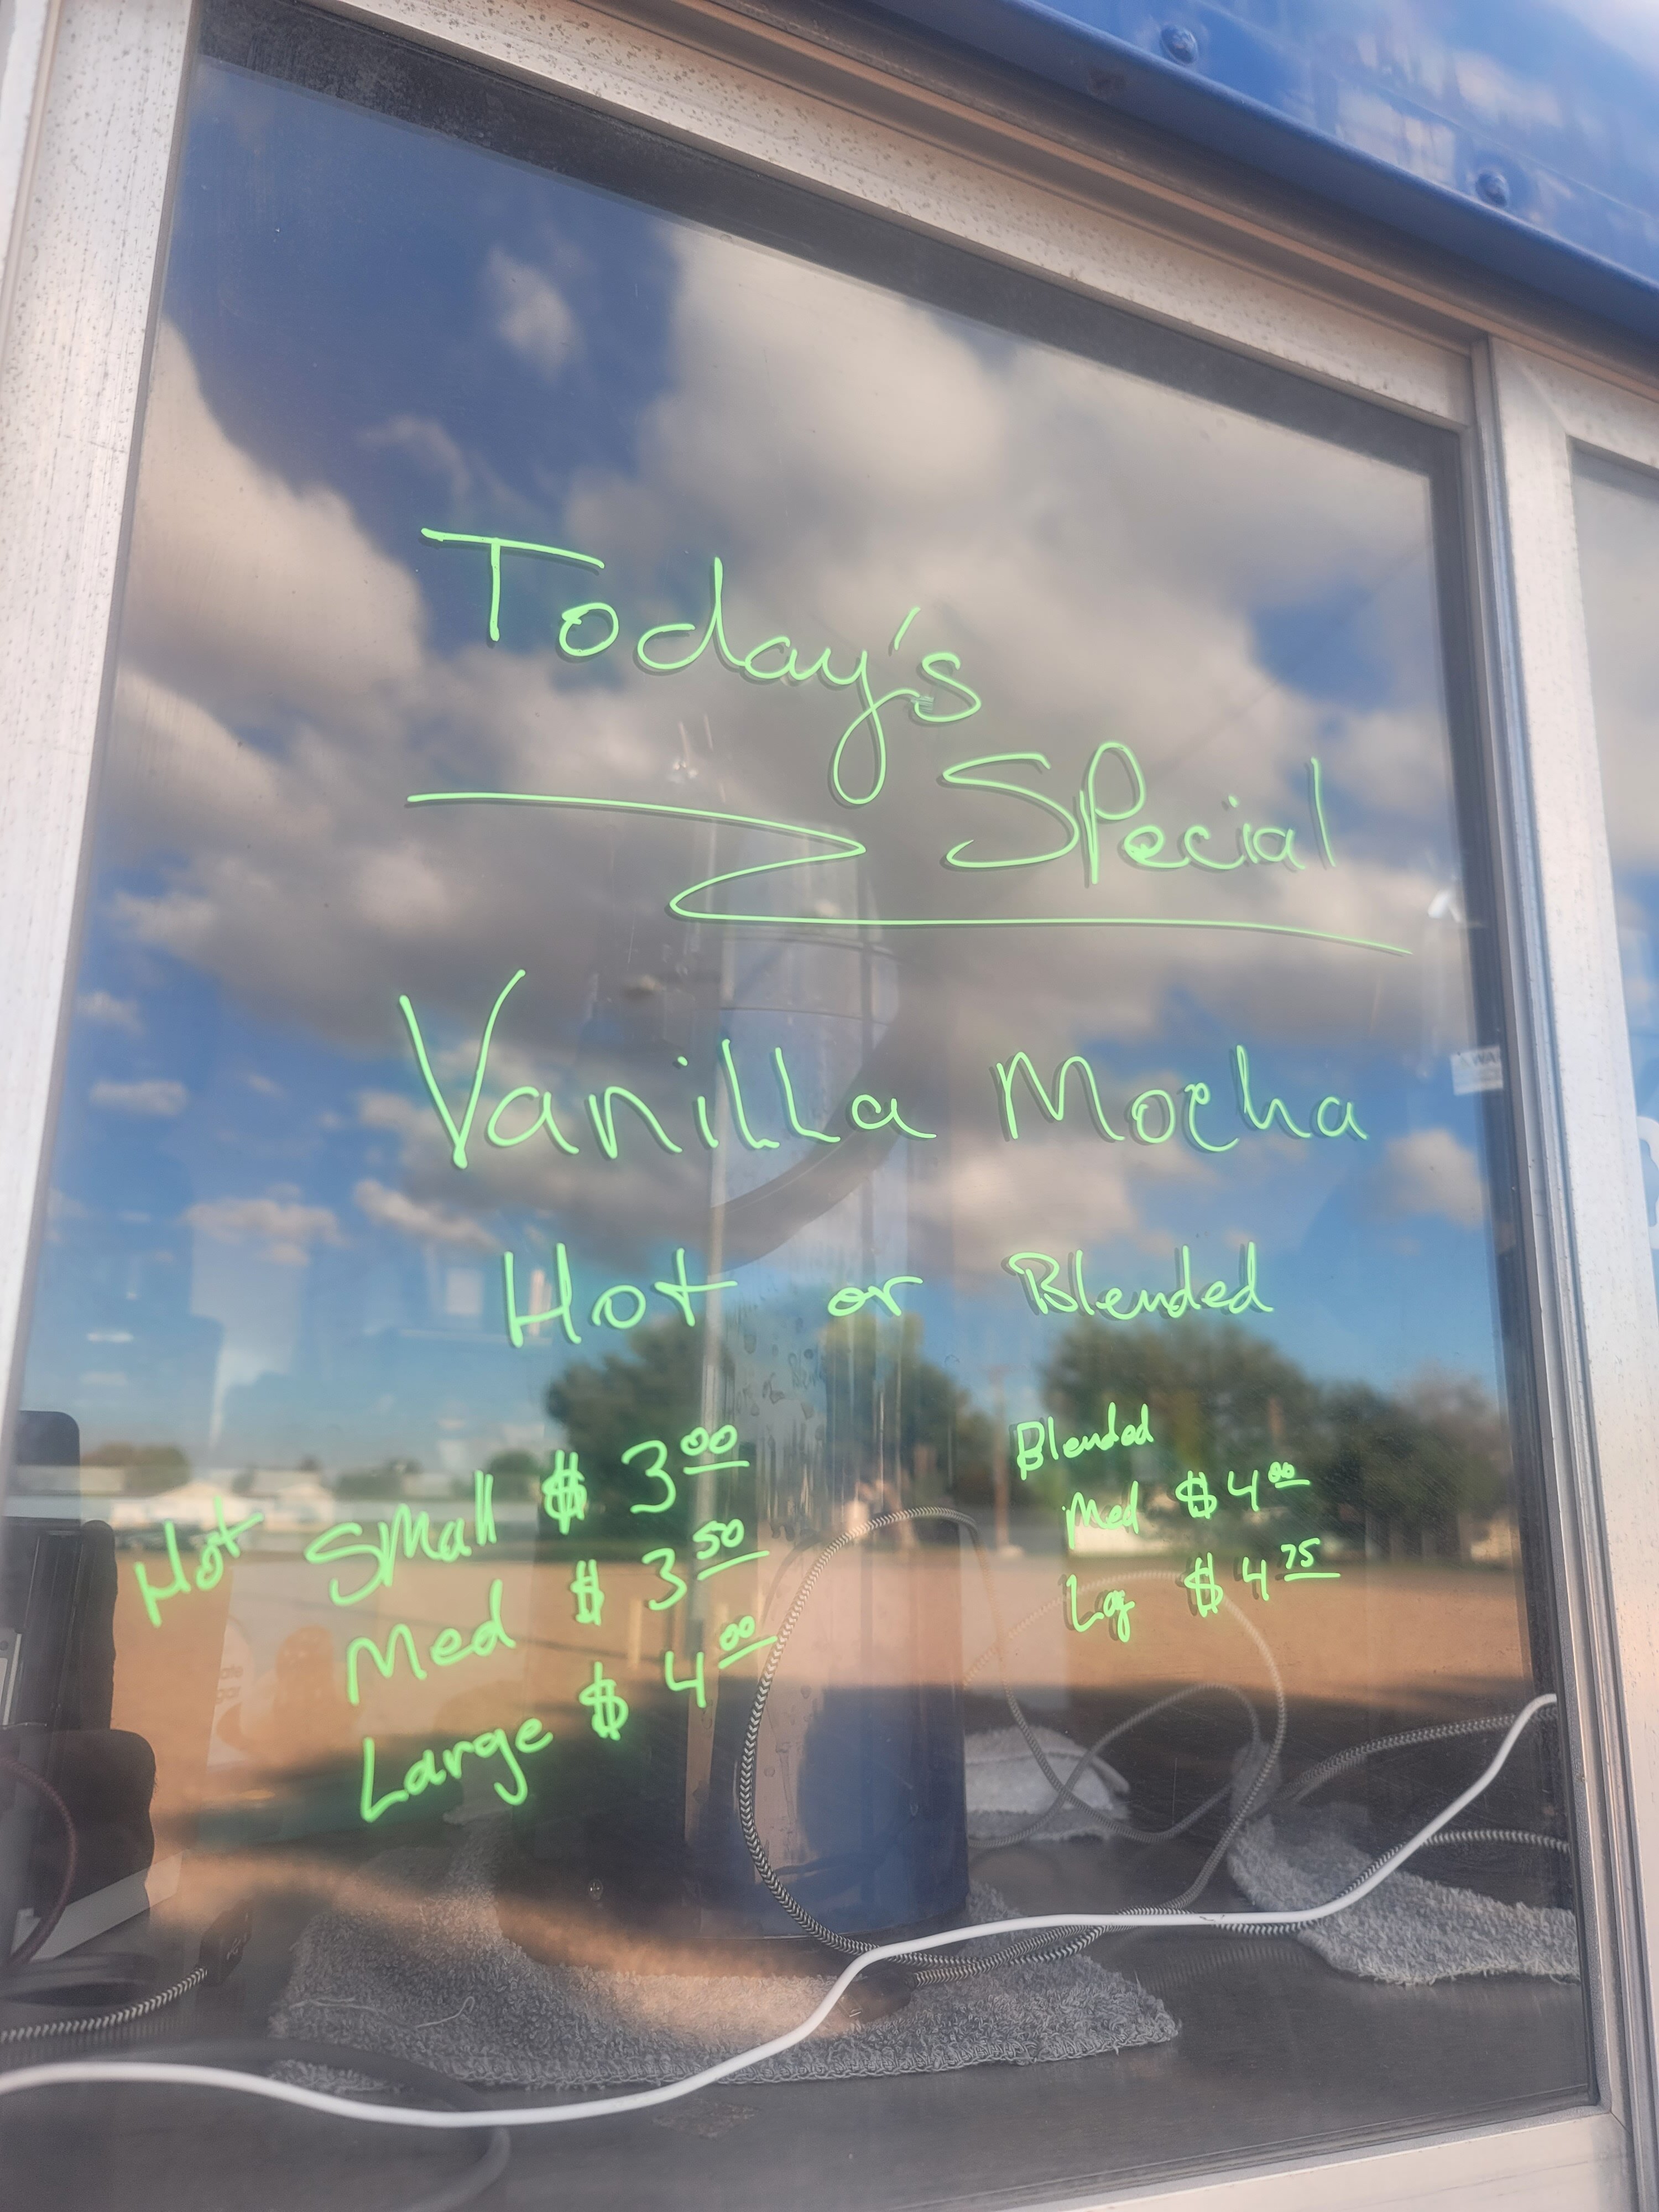 Today's
Special
Vanilla Mocha
Hot or Blended
Hot Small $ 3.00
Med $ 3.50
Large $ 4.00
Blended
Med $ 4.00
Lg $ 4.75